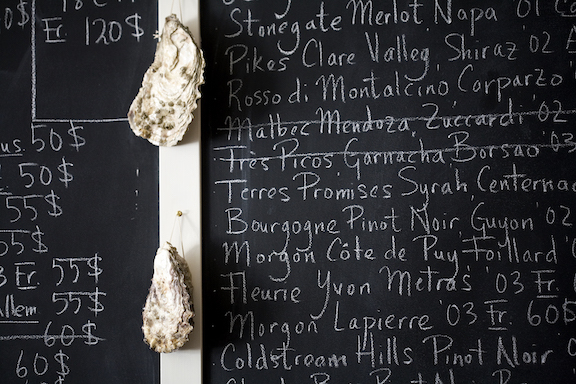 18 $
Er. 120 $.
us. 50 $
50 $
55 $
55 $
3 Er. 55 $
55 $
60 $
60 $
Stonegate Merlot Napa '01
Pikes Clare Valley, Shiraz '02
Rosso di Montalcino Corparzo
Malbec Mendoza, Zuccardi '02
Tres Picos Garnacha Borsao '03
Terres Promises Syrah, Centernac
Bourgogne Pinot Noir, Guyon '02
Morgon Côte de Puy Foillard '0
Fleurie Yvon Metras '03 Er.
Morgon Lapierre '03 Er. 60$
Coldstream Hills Pinot Noir '0